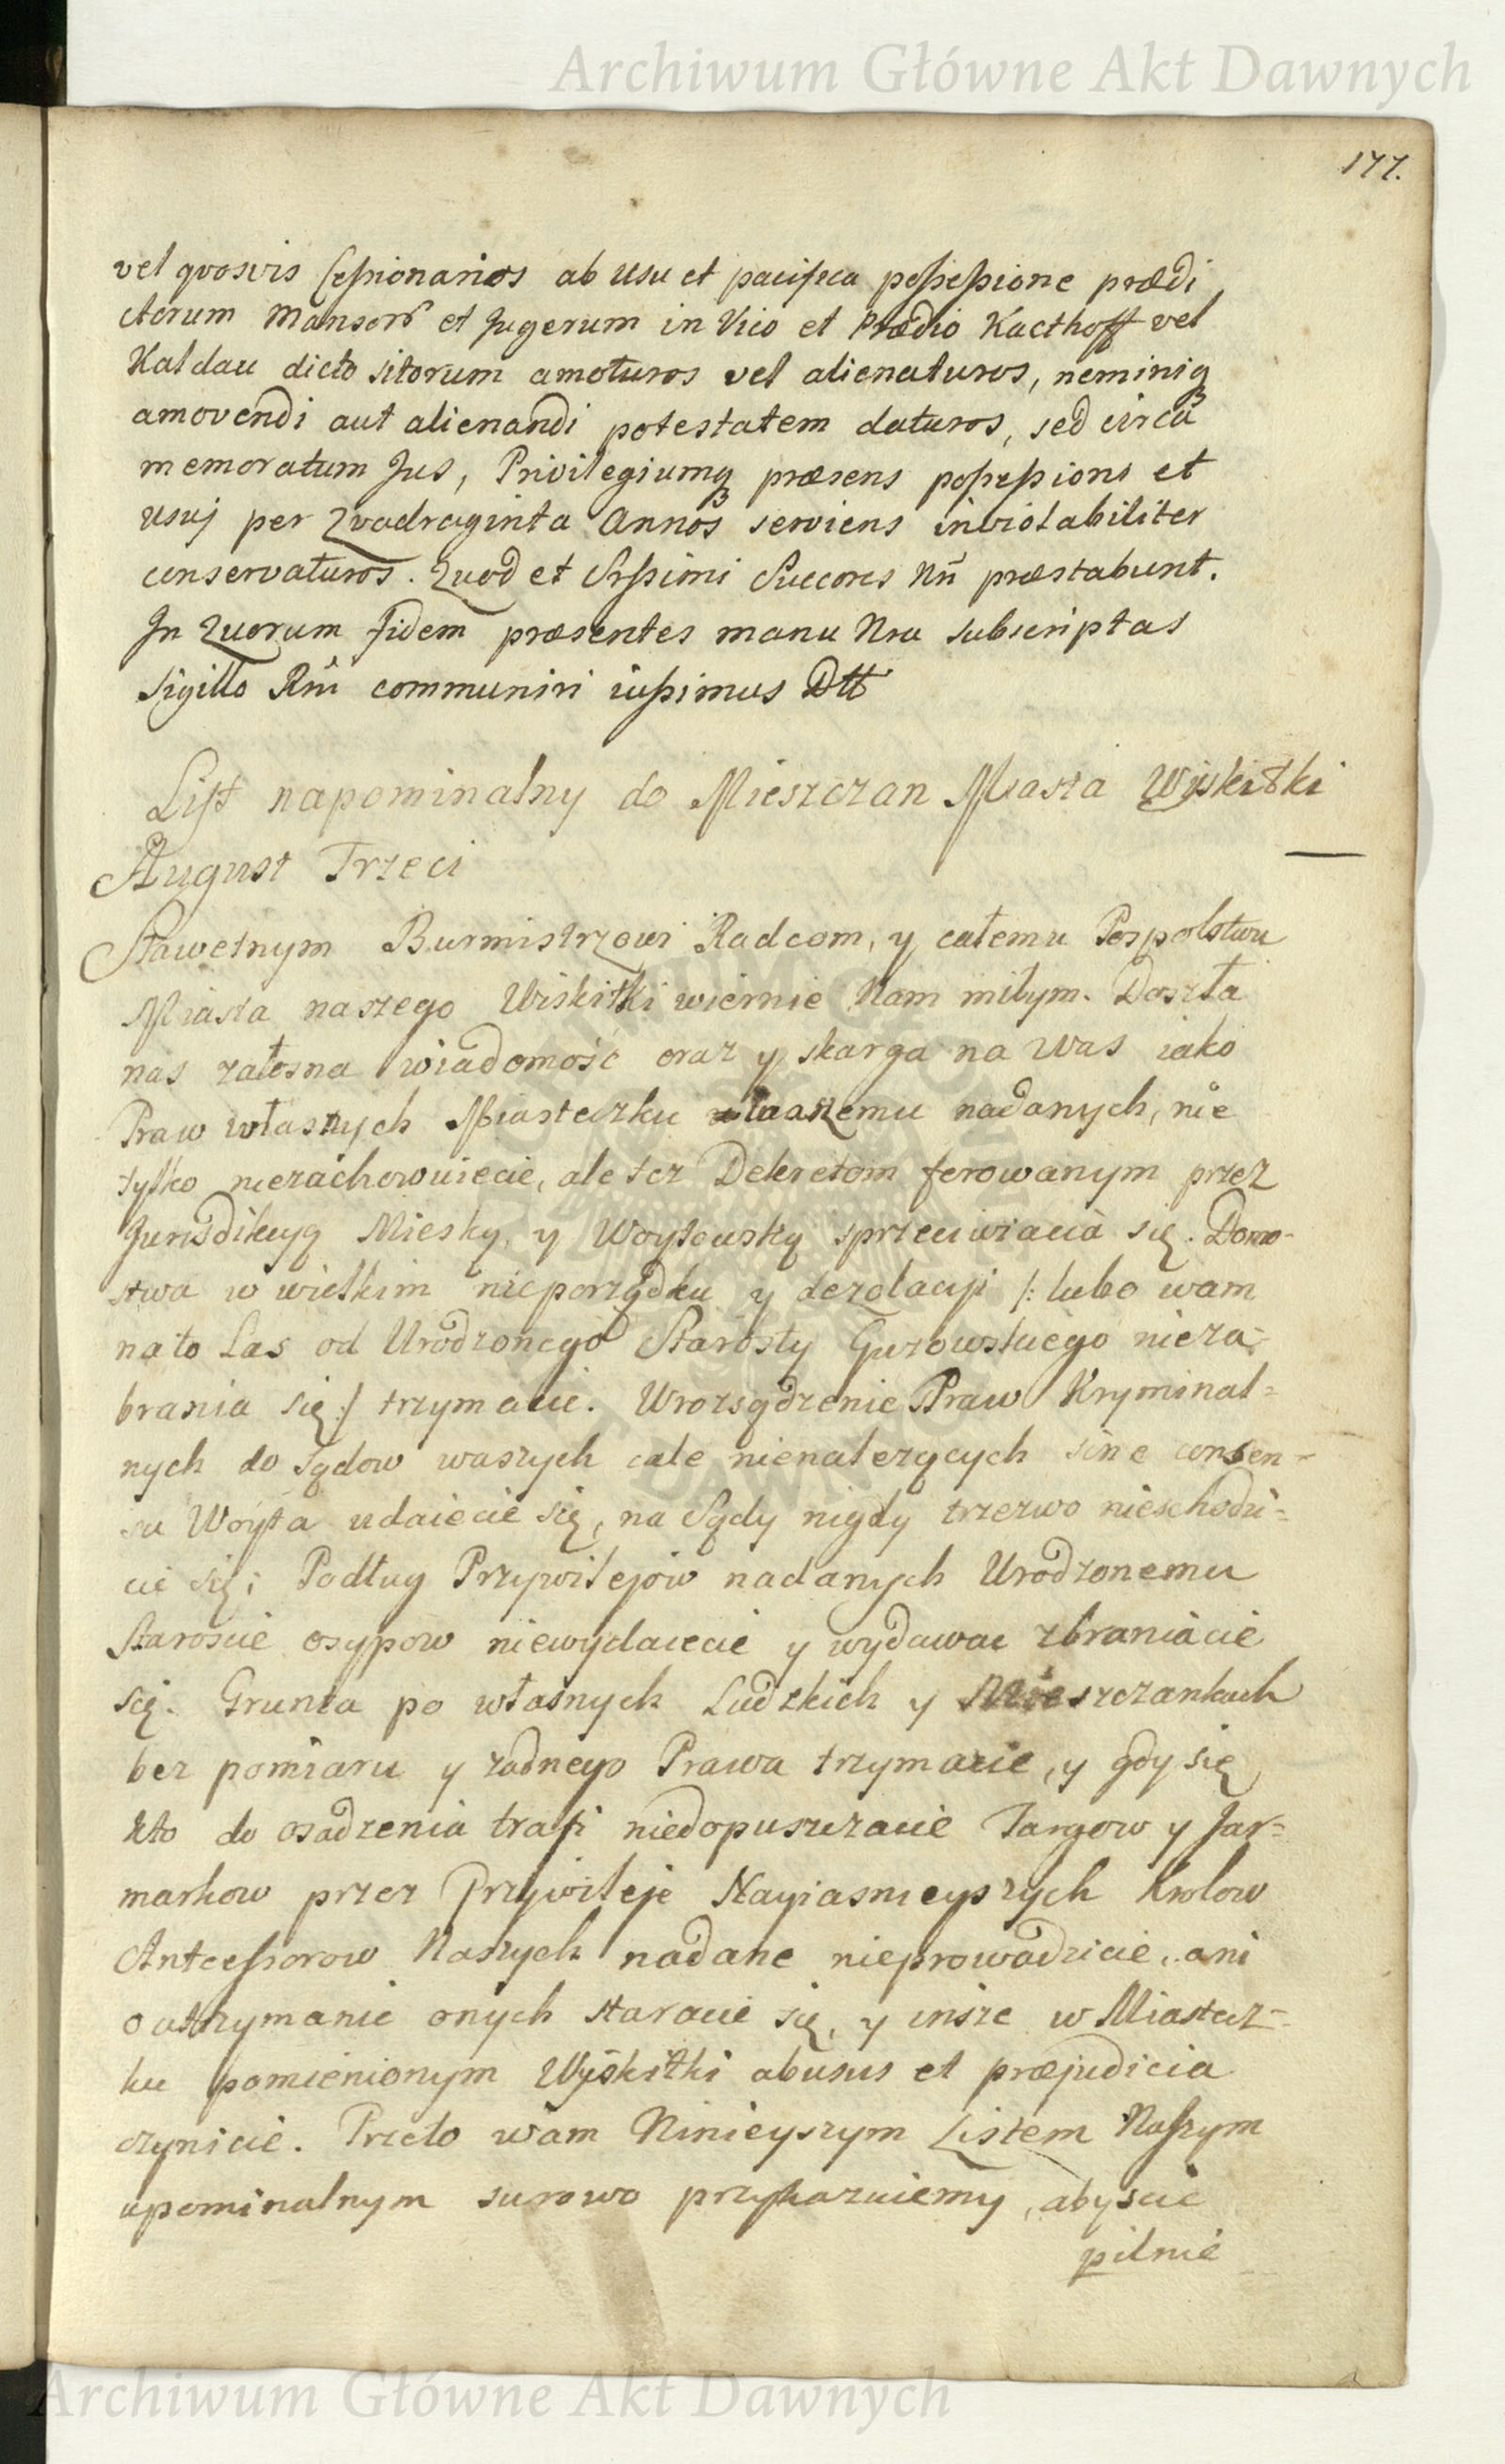 Archiwum Główne Akt Dawnych
177.
vel qvosvis Cessionarios ab usu et pacifica possessione prædi
ctorum Mansorũ et Jugerum in Vico et Prædio Kacthoff vel
Kaldau dicto sitorum amoturos vel alienaturos, neminiq
amovendi aut alienandi potestatem daturos, sed circa
memoratum Jus, Privilegiumq præsens possessioni et
usuj per Qvadraginta Annos serviens inviolabiliter
conservaturos. Quod et Srssimi Succores Nrĩ præstabunt.
In Quorum fidem præsentes manu Nra subscriptas
Sigillo Rni communiri iussimus Dtt
List napominalny do Mieszczan Miasta Wyskitki
August Trzeci
Sławetnym Burmistrzowi Radcom, y całemu Pospolstwu
Miasta naszego Wiskitki wiernie Nam miłym. Doszła
nas załosna wiadomość oraz y skarga na Was iako
Praw własnych Miasteczku waszemu nadanych, nie
tylko niezachowuiecie, ale tez Dekretom ferowanym przez
Jurisdikcyą Mieską, y Woytowską sprzeciwiacia się. Domo-
stwa w wielkim nieporządku y dezolacyi /: lubo wam
na to Las od Urodzonego Starosty Guzowskiego nieza-
brania się :/ trzymacie. W rozsądzenie Praw Kryminal=
nych do Sądow waszych cale nienalezących sine consen-
su Woyta udaiecie się, na Sądy nigdy trzezwo nieschodzi=
cie się; Podług Przywilejow nadanych Urodzonemu
Staroscie osypow niewydaiecie y wydawac zbraniacie
się. Grunta po własnych Ludzkich y Mieszczankach
bez pomiaru y zadnego Prawa trzymacie, y gdy się
kto do osadzenia trafi niedopuszczacie Targow y Jar=
markow przez Przywileje Nayiasnieyszych Krolow
Antcessorow Naszych nadane nieprowadzicie, ani
o utrzymanie onych staracie się, y insze w Miastecz-
ku pomienionym Wyskitki abusus et præjudicia
czynicie. Przeto wam Ninieyszym Listem Naszym
upominalnym surowo przykazuiemy, abyscie
pilnie
Archiwum Główne Akt Dawnych